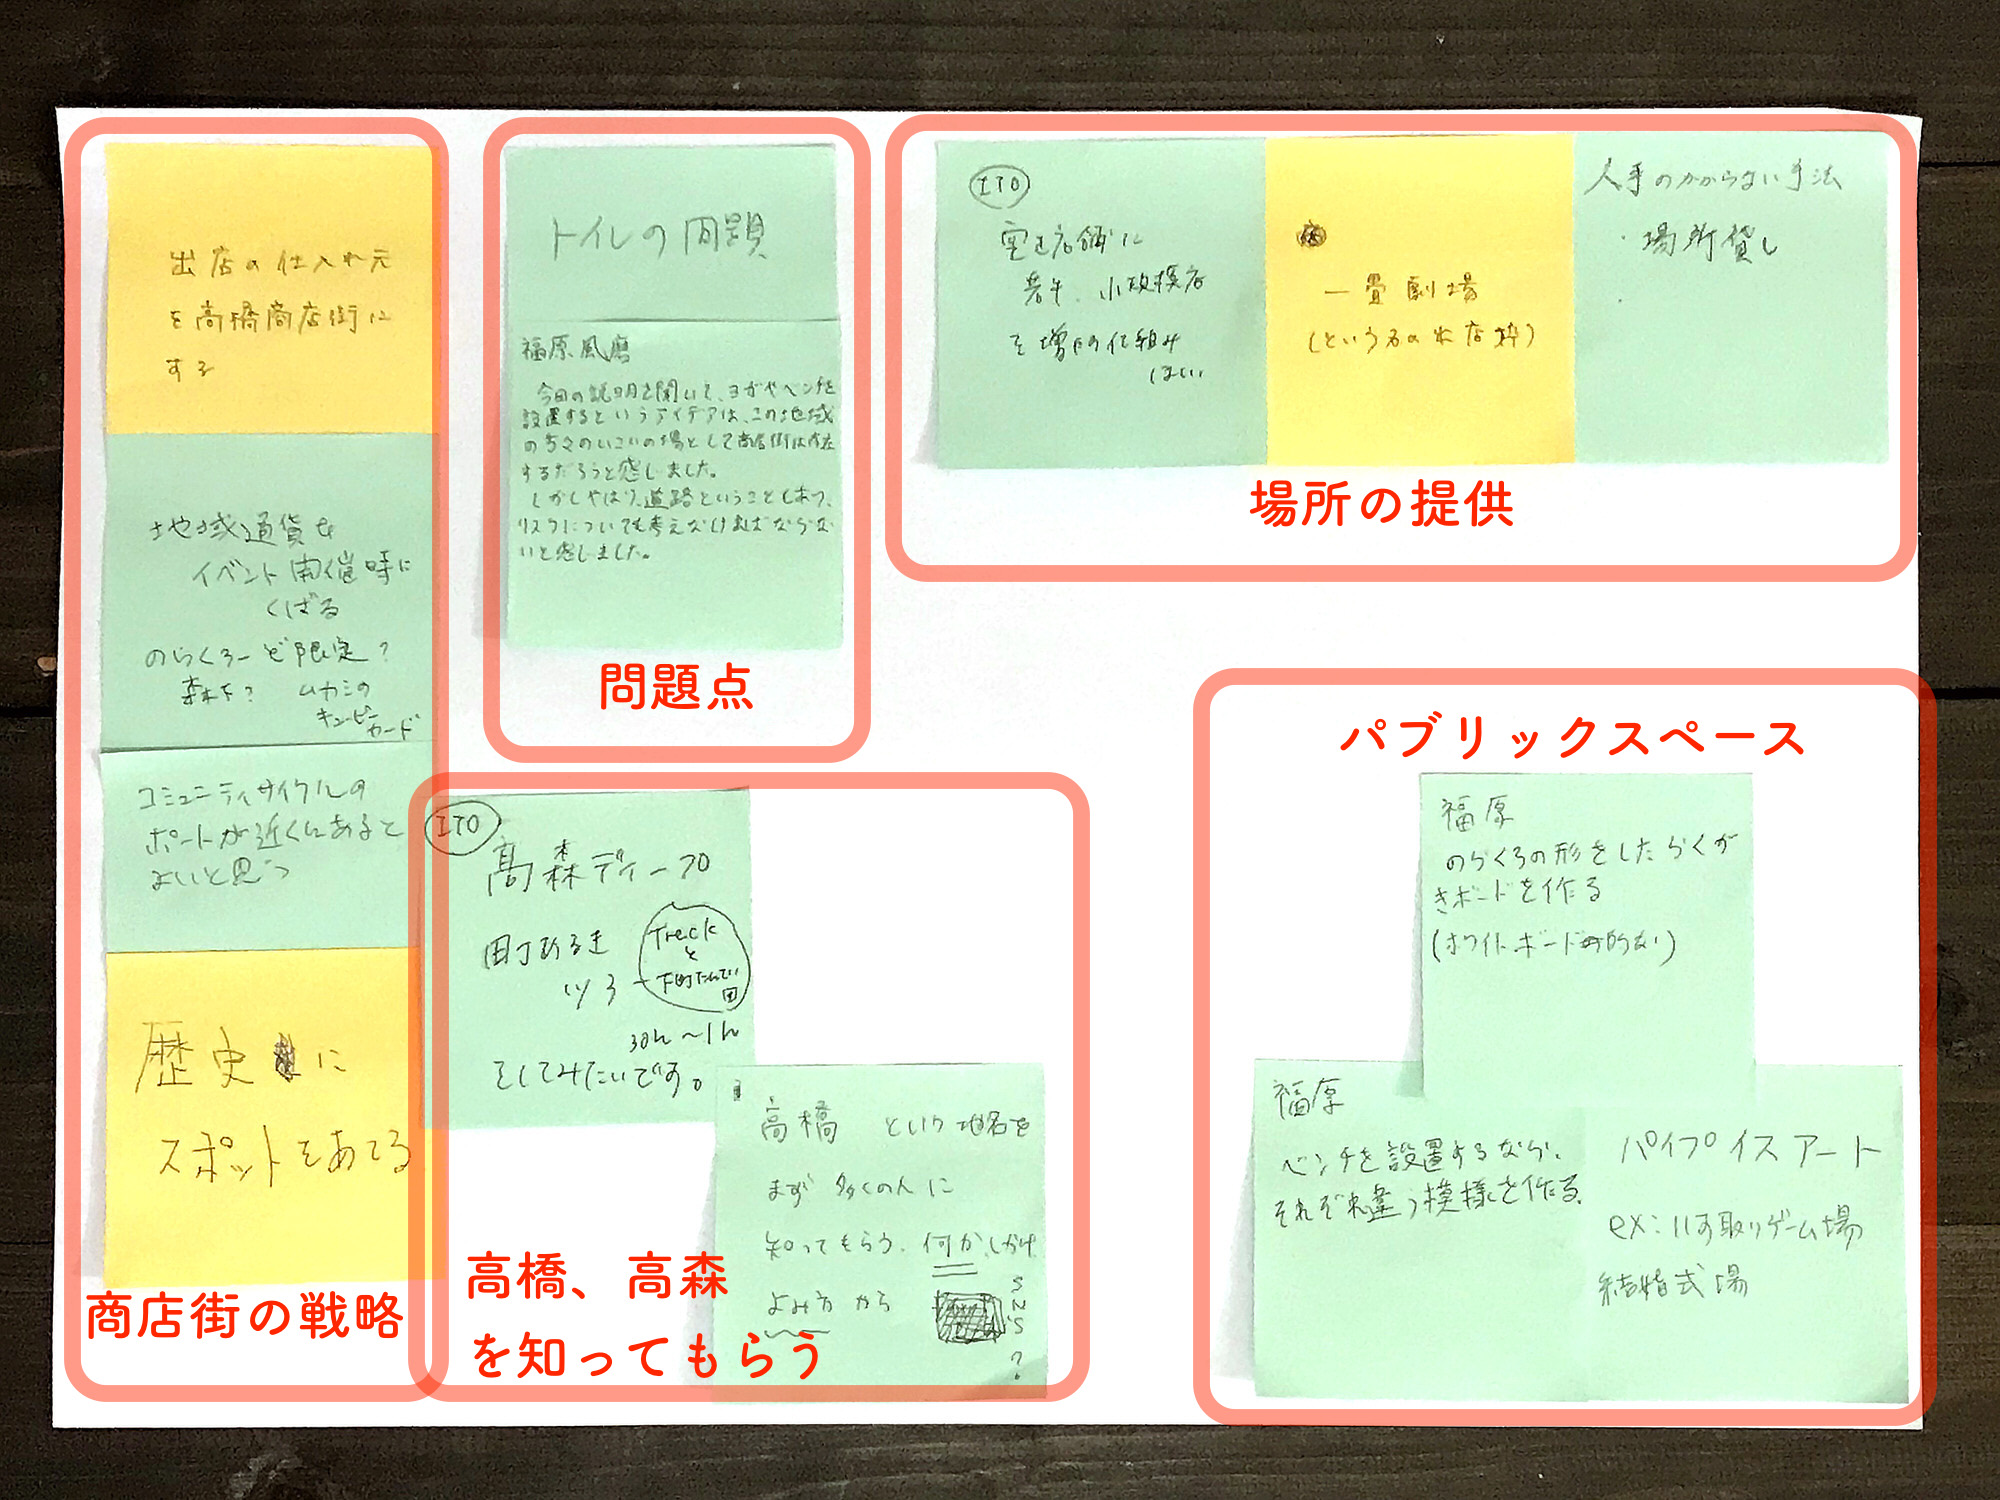 出店の仕入れ元
を高橋商店街に
する
地域通貨を
イベント開催時に
くばる
のらくろーど限定?
森下? ムカシの
キューピー
カード
コミュニティサイクルの
ポートが近くにあると
よいと思う
歴史に
スポットをあてる
商店街の戦略
トイレの問題
福原風磨
今回の説明を聞いて、ヨガやベンチを
設置するというアイデアは、この地域
の方々のいこいの場として商店街は存在
するだろうと感じました。
しかしやはり、道路ということもあり、
リスクについても考えなければならな
いと感じました。
問題点
ITO
空き店舗に
若手、小規模店
を増やす仕組み
ほしい
一畳劇場
(という名の出店枠)
人手のかからない手法
・場所貸し
・
場所の提供
ITO
高森ディープ
町あるき
ツアー
Treck
と
下町たんてい
団
30m~1h
をしてみたいです。
高橋 という地名を
まず 多くの人に
知ってもらう、何かしかけ
よみ方 から
SNS?
高橋、高森
を知ってもらう
パブリックスペース
福原
のらくろの形をしたらくが
きボードを作る
(ホワイトボード的な)
福原
ベンチを設置するなら、
それぞれ違う模様を作る。
パイプイスアート
ex:いす取りゲーム場
結婚式場